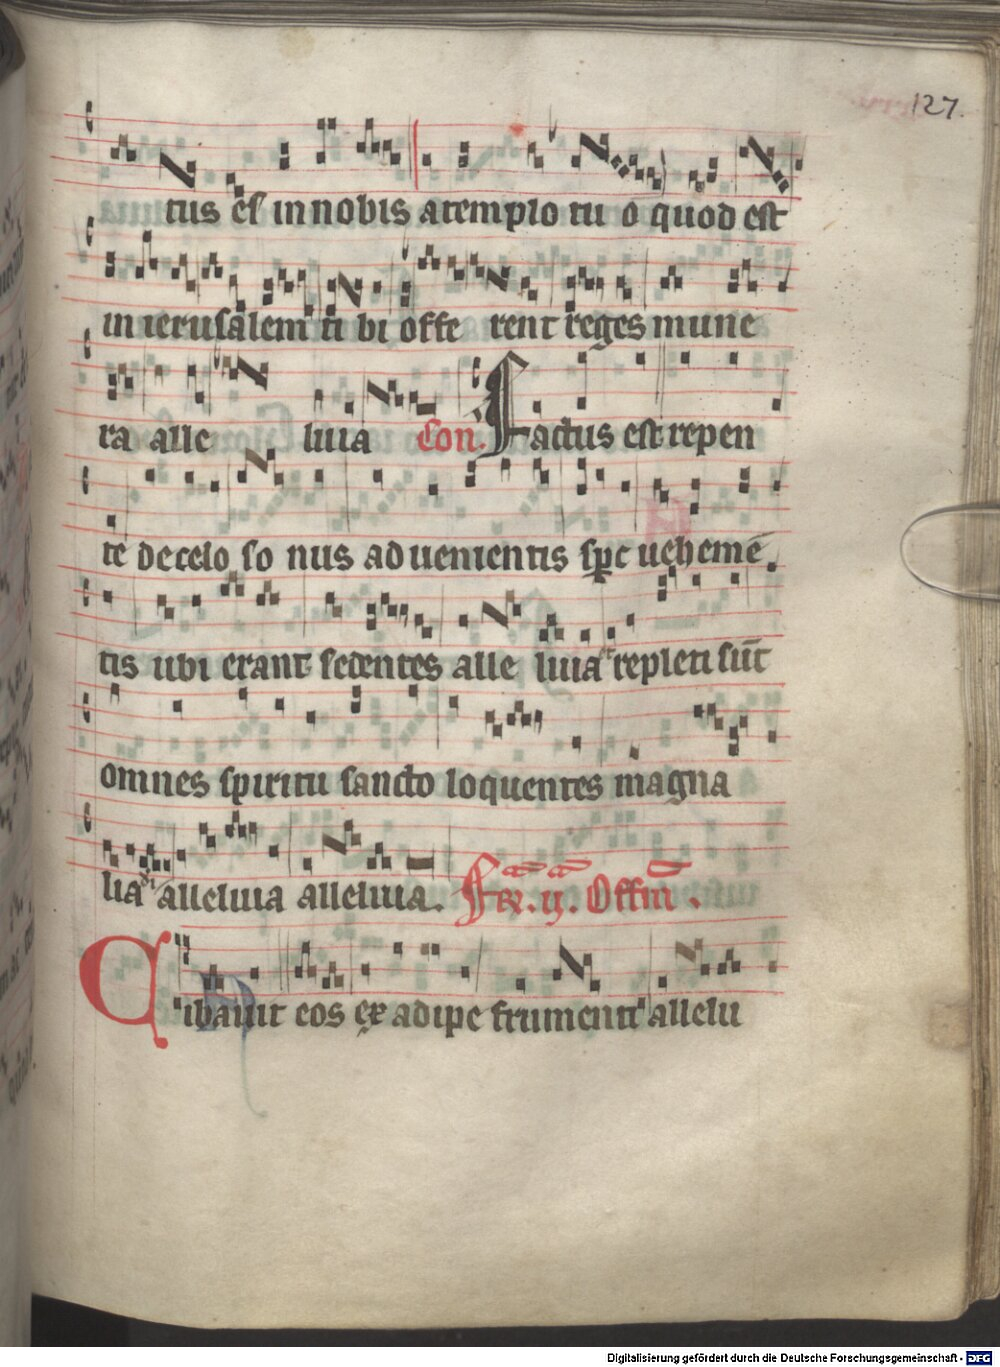 127
tus es in nobis a templo tu o quod est
in ierusalem ti bi offe rent reges mune
ra alle luia Con. Factus est repen
te de celo so nus ad uenientis spc uehemē
tis ubi erant sedentes alle luia et repleti sūt
omnes spiritu sancto loquentes magna
lia dei alleluia alleluia. Fr̄a. ij. Offm̄.
Cibauit eos ex adipe frumenti allelu
Digitalisierung gefördert durch die Deutsche Forschungsgemeinschaft - DFG